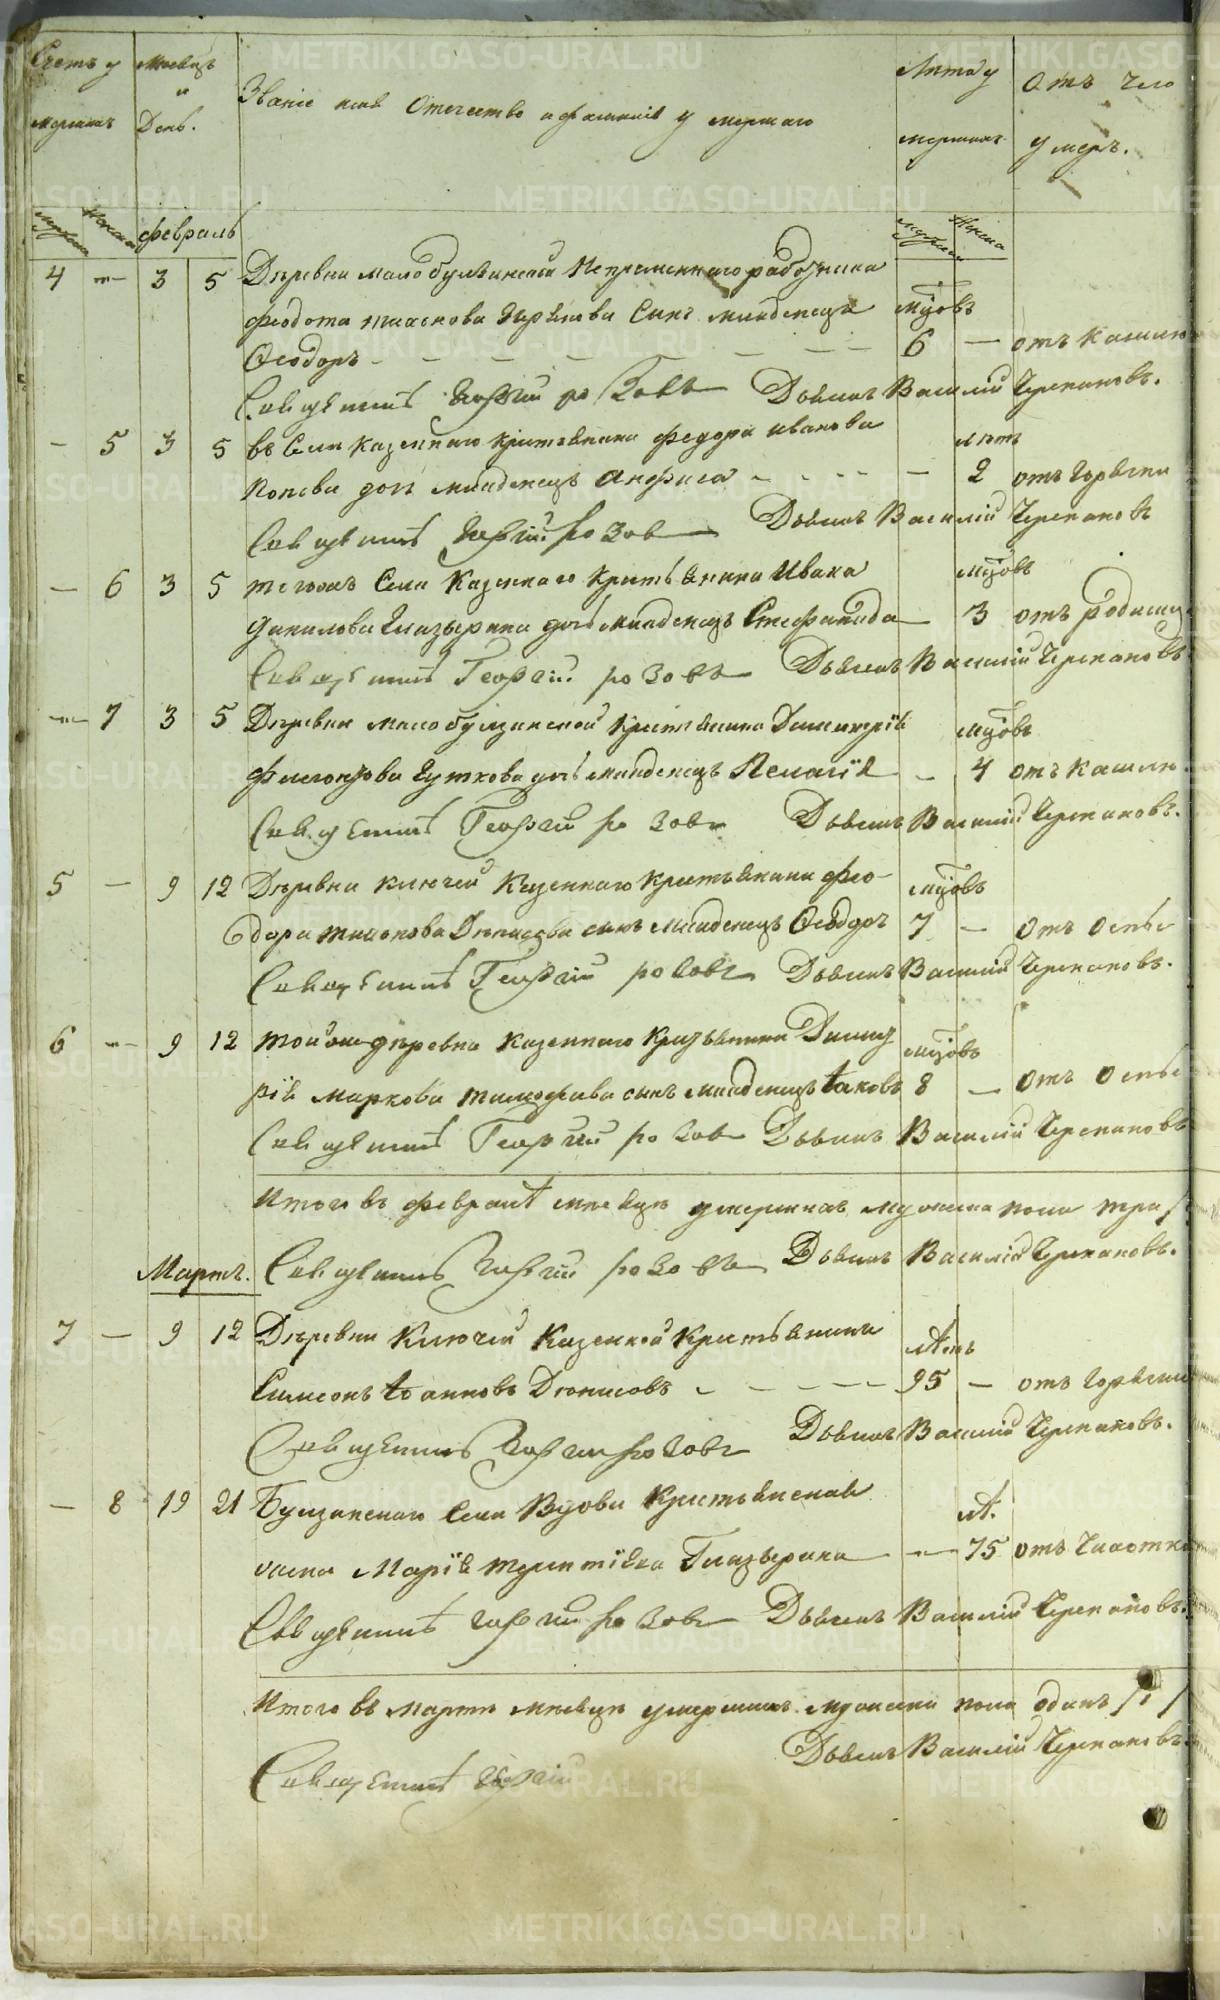 Счетъ у
мершихъ
Мѣсяцъ
и
День.
Званіе имя Отечество и фамилія умершаго
Лѣта у
мершихъ
Отъ чего
умеръ.
мужеска
женска
февраль
мужеска
женска
4 — 3 5 Дѣревни Малобулзинской Непременнаго работника
Феодота сынъ младенецъ мцовъ
Ѳеодоръ — — — — — — 6 — отъ кашлю
Священникъ Георгій розовъ Дьячекъ Василій Черепановъ.
— 5 3 5 въ Селѣ Казеннаго крестьянина федора иванова лѣтъ
попова дочь младенецъ Анфиса — — 2 отъ Горячки
Священникъ Георгій розовъ Дьячекъ Василій Черепановъ
— 6 3 5 тогожъ Села Казеннаго крестьянина Ивана мцовъ
данилова Глазырина дочь младенецъ Стефанида — 3 отъ родимца
Священникъ Георгій розовъ Дьячекъ Василій Черепановъ
— 7 3 5 Дѣревни малобулзинской крестьянина Димитрія мцовъ
дочь младенецъ Пелагія — 4 отъ кашлю
Священникъ Георгій розовъ Дьячекъ Василій Черепановъ.
5 — 9 12 Дѣревни ключей Казеннаго крестьянина фео- мцовъ
дора сынъ младенецъ Ѳеодоръ 7 — отъ оспы
Священникъ Георгій розовъ Дьячекъ Василій Черепановъ.
6 — 9 12 той же дѣревни казеннаго крестьянина Димит мцовъ
рія маркова тимофѣева сынъ младенецъ Іаковъ 8 — отъ оспы
Священникъ Георгій розовъ Дьячекъ Василій Черепановъ
Итого въ февралѣ мѣсяцѣ умершихъ мужеска пола три
Мартъ. Священникъ Георгій розовъ Дьячекъ Василій Черепановъ.
7 — 9 12 Дѣревни Ключей Казенной Крестьянинъ лѣтъ
Симеонъ Іоанновъ Діонисовъ — — — — 95 — отъ горячки
Священникъ Георгій розовъ Дьячекъ Василій Черепановъ.
— 8 19 21 Булзинскаго Села Вдова Крестьянская л.
Марія терентіева Глазырина — 75 отъ чахотки
Священникъ Георгій розовъ Дьячекъ Василій Черепановъ.
Итого въ мартѣ мѣсяцѣ умершихъ мужеска пола одинъ /1/
Дьячекъ Василій Черепановъ
Священникъ Георгій
METRIKI.GASO-URAL.RU